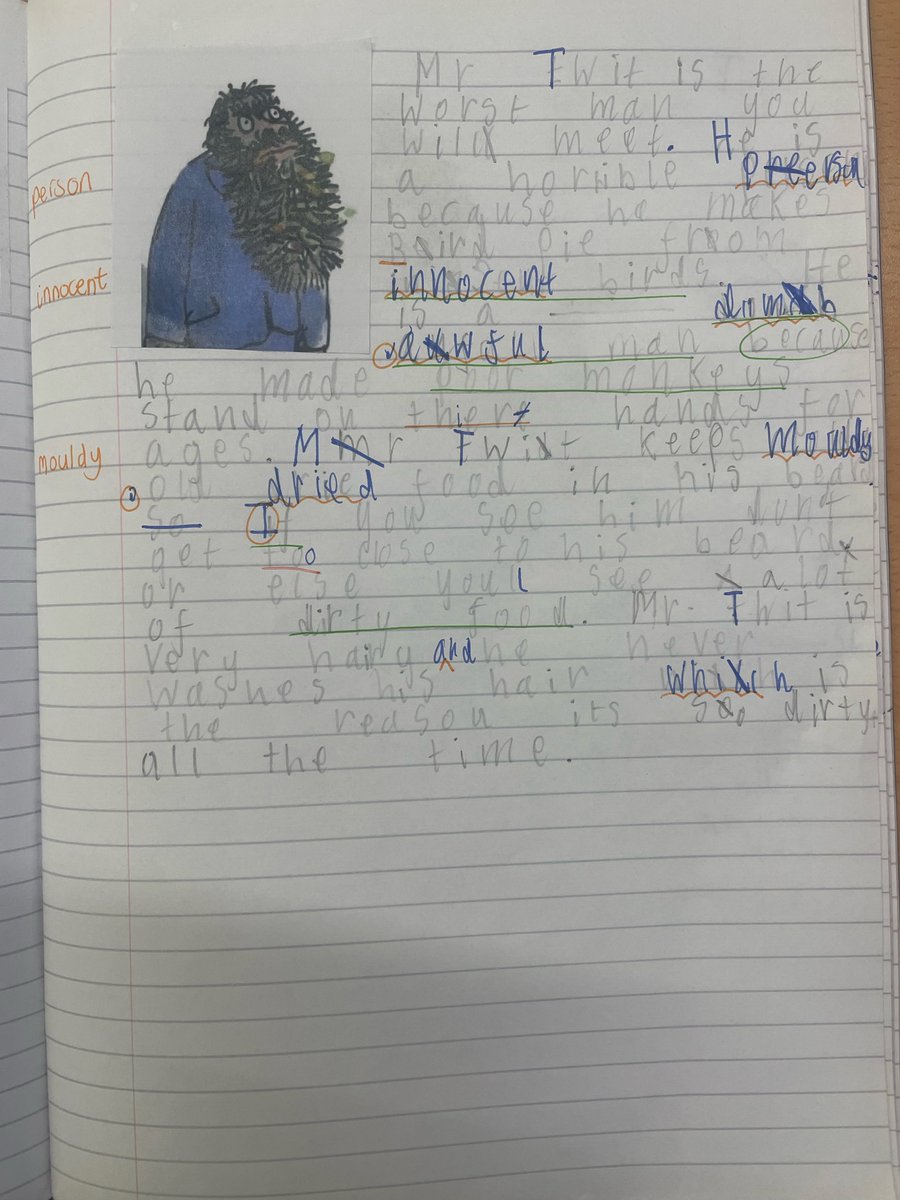 Mr Twit is the
worst man you
will meet. He is
person
a horrible person
because he makes
Bird pie from
innocent
innocent birds. He
is a dumb
awful man because
he made poor monkeys
stand on their hands for
mouldy
ages. Mr Twit keeps mouldy
old dried food in his beard.
So If you see him dont
get too close to his beard
or else youll see alot
of dirty food. Mr. Twit is
very hairy and he never
washes his hair which is
the reason its so dirty
all the time.